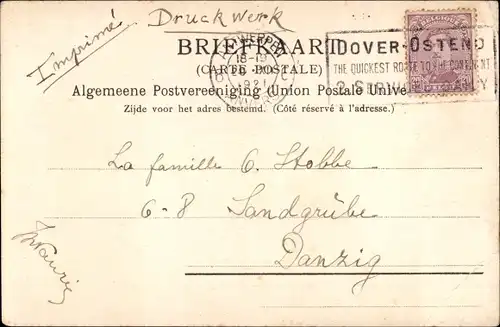 Imprimé
Druckwerk
BRIEFKAART
DOVER-OSTEND
(CARTE POSTALE)
THE QUICKEST ROUTE TO THE CONTINENT
Algemeene Postvereeniging (Union Postale Unive
Zijde voor het adres bestemd. (Côté réservé à l'adresse.)
ANTWERPEN
18-19
1921
ANVERS
BELGIQUE
La famille G. Stobbe
6-8 Sandgrübe
Danzig